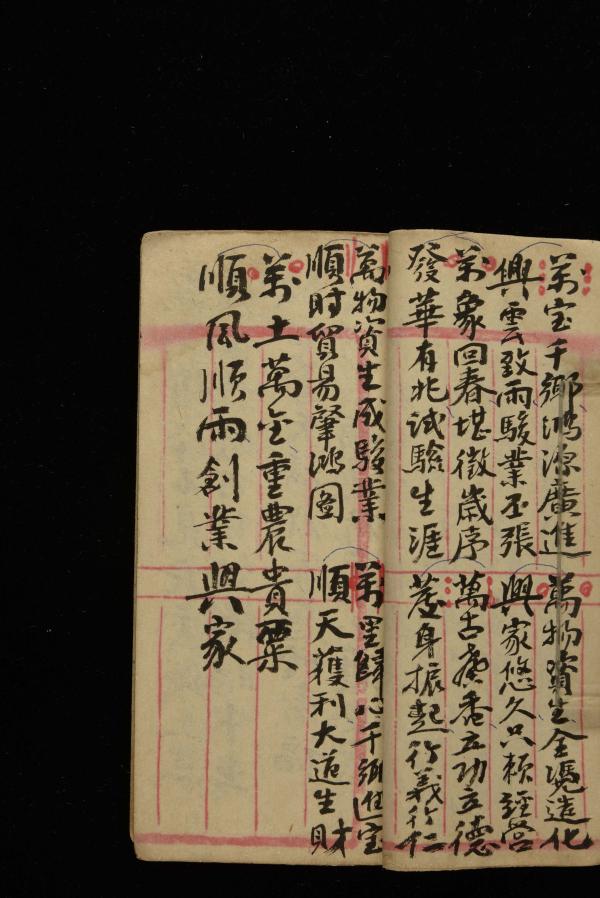 萬宝千鄉鴻源廣進
興雲致雨駿業丕張
萬物資生全憑造化
興家悠久只賴經营
萬象回春堪徵歲序
發華有兆試驗生涯
萬古黄香立功立德
身振起行義行仁
萬物資生成駿業
順时貿易肇鴻图
萬里歸心千鄉進宝
順天獲利大道生財
萬土萬全重農貴粟
順風順雨創業興家